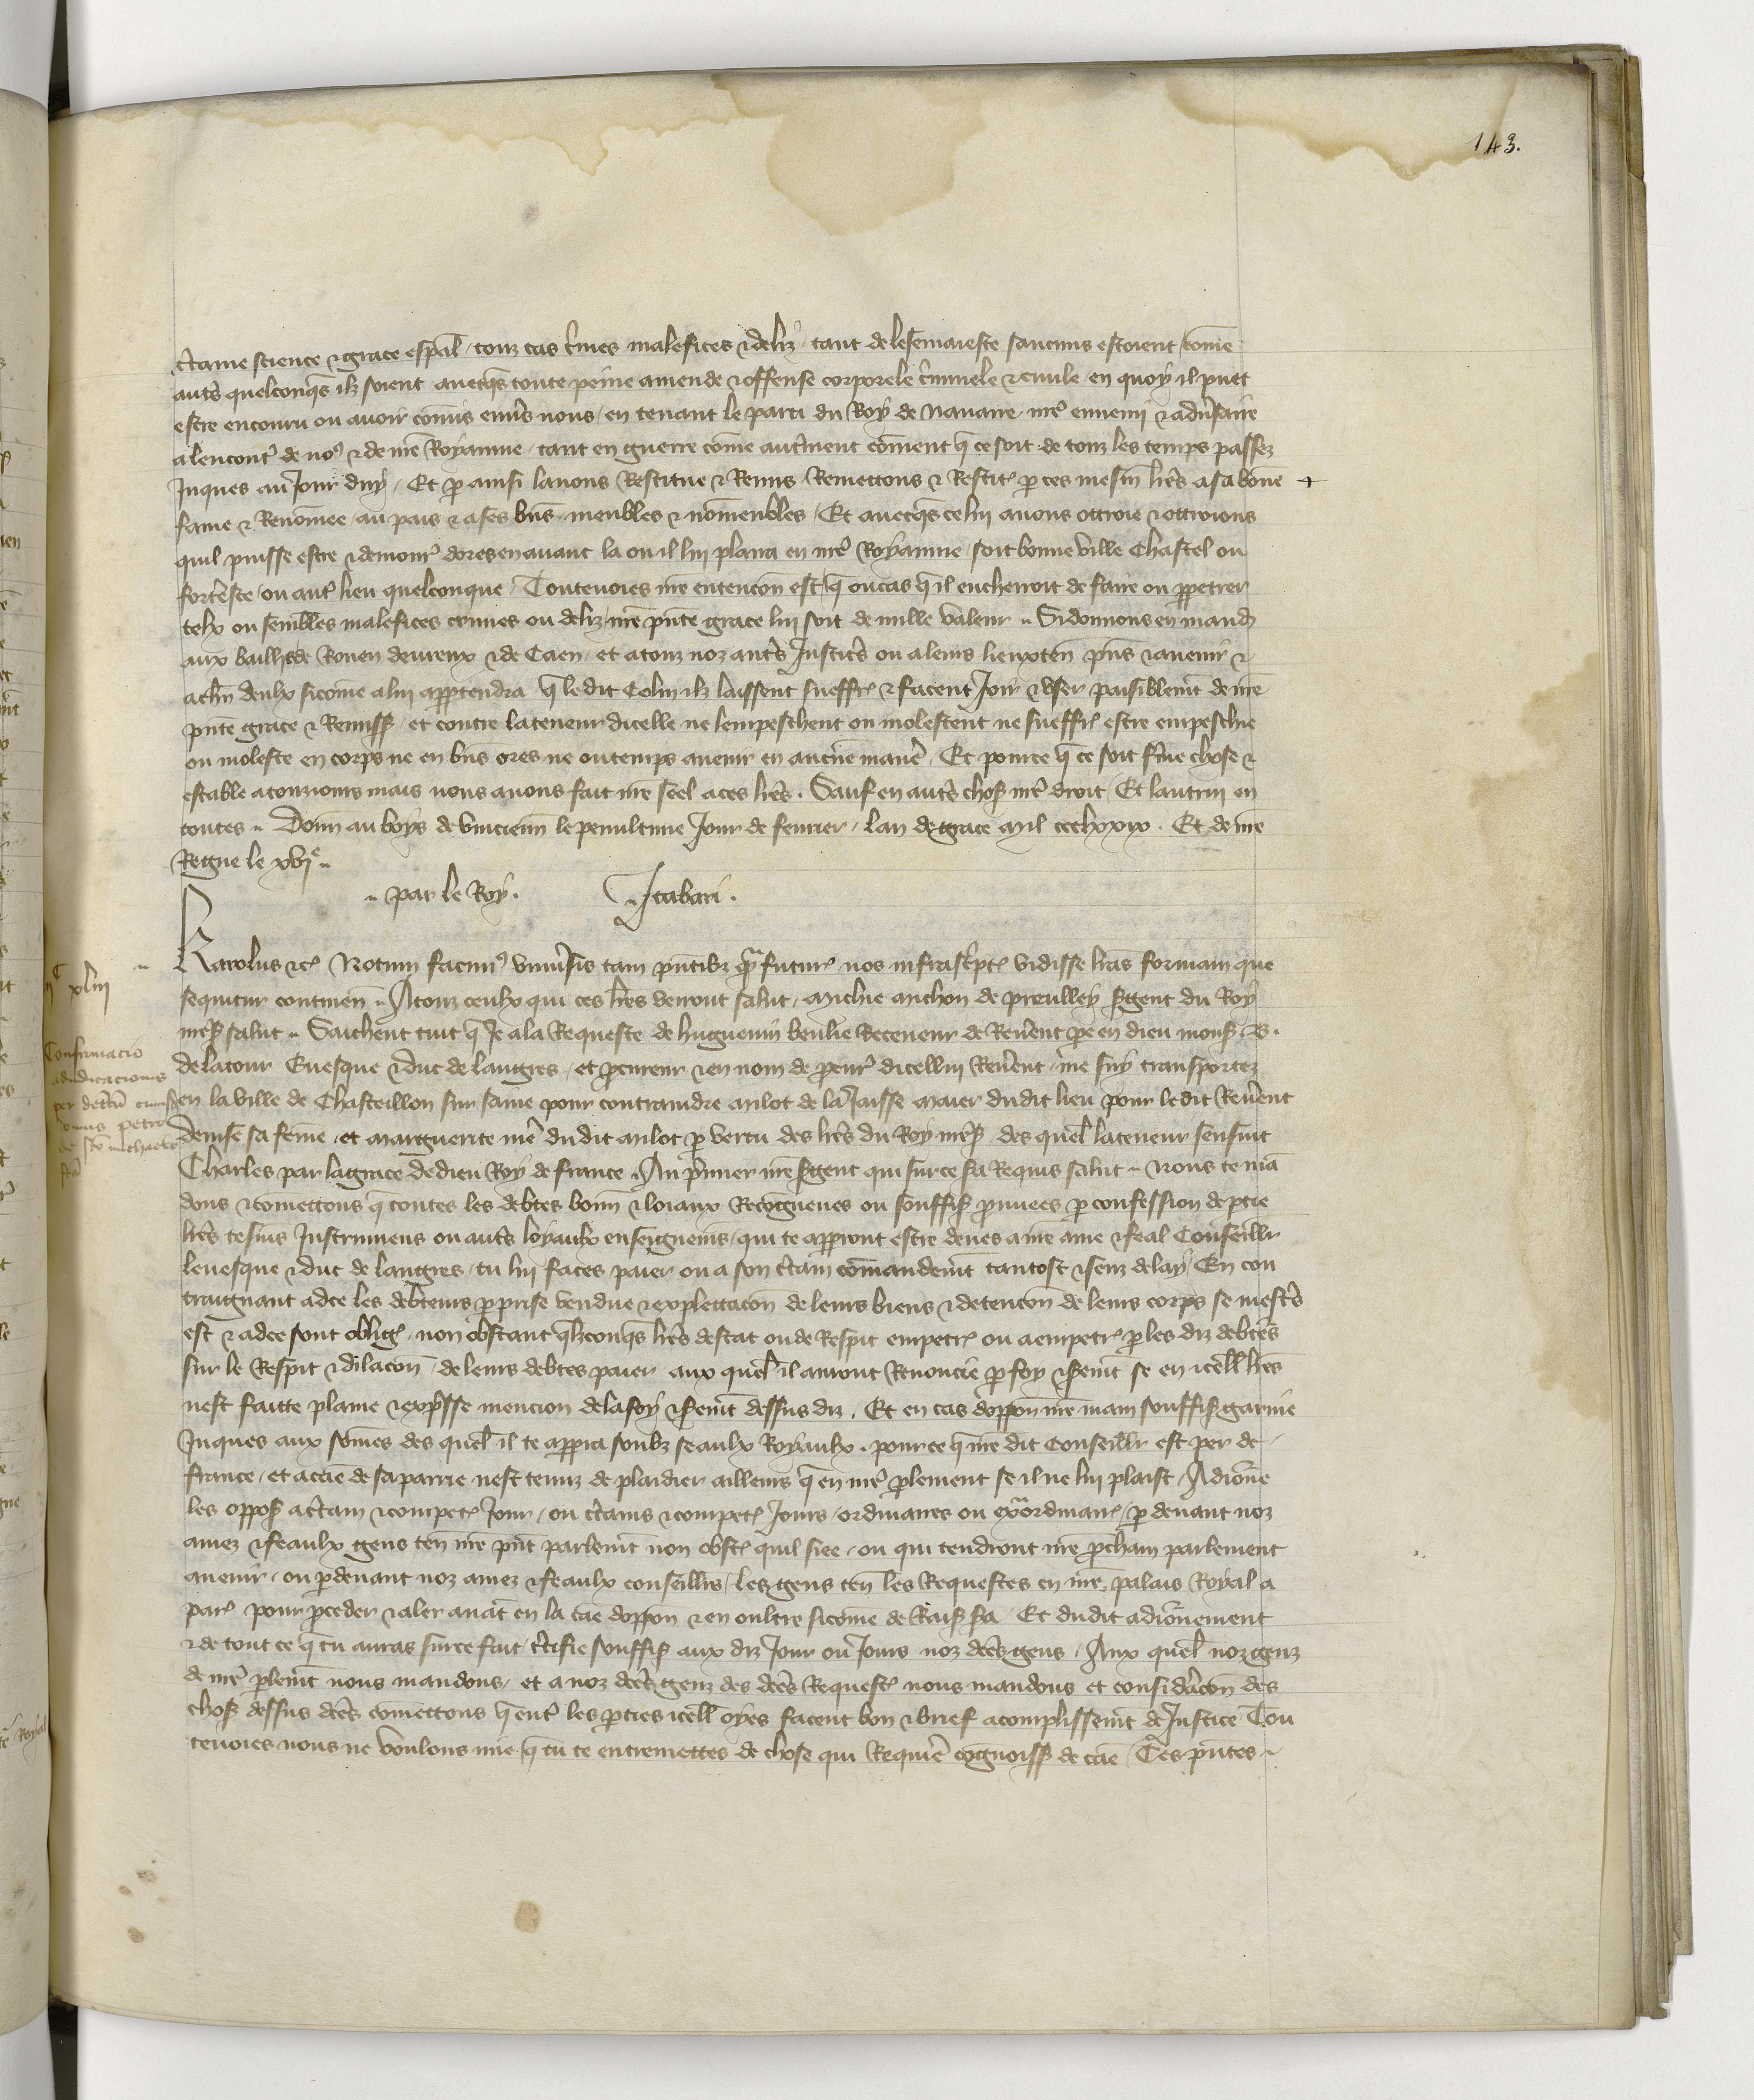 143.
c̃taine science & grace esp̃al / touz cas c̃imes malefices & deliz / tant de lese maieste saucuns estoient / com̃e
aut̃s quelconq̃s ilz soient auecq̃s toute peine amende & offense corporele c̃iminele & ciuile en quoy il puet
estre encouru ou auoir com̃is enu̾s nous / en tenant le parti du Roy de Nauarre / nr̃e ennemi & adu̾saire
alencont̃ de no⁹ & de nr̃e Royaume / tant en guerre com̃e aut̃ment com̃ent q̃ ce soit de touz les temps passez
Jusques au Jour duy / Et p̱ ainsi lauons Restitue & Remis Remettons & Restit᷒ p̱ ces mesm̃ lr̃es a sa bon̄e +
fame & Renom̃ee / au pais & a ses bn̄s / meubles & nom̃eubles / Et auecq̃s ce lui auons ottroie & ottroions
quil puisse estre & demour᷒ dores en auant la ou il lui plaira en nr̃e Royaume / soit bonne ville Chastel ou
fort̃esce / ou aut᷒ lieu quelconque / Touteuoies nr̃e entencõn est / q̃ ou cas q̃ il encherroit de faire ou p̱petrer
telx ou sembl̃es malefices crimes ou deliz / nr̃e pñte grace lui soit de nulle valeur .. Si donnons en mand᷒
aux baillis de Rouen deureux & de Caen / et a touz noz aut̃s Justic̃s ou a leurs lieuxten̄ pñs & auenir &
a ch̃un deulx sicom̃e a lui app̱tendra q̃ le dit Colin ilz laissent sueffr᷒ & facent Joir & vser paisiblem̃t de nr̃e
pñte grace & Remiss᷒ / et contre la teneur dicelle ne lempeschent ou molestent ne sueffr᷒ estre empeschie
ou moleste en corps ne en bn̄s ores ne ou temps auenir en aucũe manẽ . Et pource q̃ ce soit f̃me chose &
estable a touzious mais nous auons fait mr̃e seel a ces lr̃es . Sauf en aut̃s chos᷒ nr̃e droit / Et lautrui en
toutes .. Don̄n au boys de vincienn̄ le penultime Jour de feurier / lan de grace Mil ccclxxix . Et de nr̃e
Regne le xvjᵉ ..
.. par le Roy . .. Jtabari .
Karolus &c᷒ Notum facim⁹ vniu̾sis tam pñtibz q̃m futur᷒ nos infrasc̃ptas vidisse lr̃as formam que
sequitur continen̄ .. A touz ceulx qui ces lr̃es verront salut / Michie Michon de preulley s̾gent du Roy
nr̃es᷒ salut .. Saichent tuit q̃ Je a la Requeste de huguenin beulie Receueur de Reu̾ent pe̱ en dieu mons᷒ . B .
de la tour Euesque & duc de langres / et p̱cureur & en nom de p̱cur᷒ dicellui Reu̾ent / me suy transportez
en la ville de Chasteillon sur saine pour contraindre Milot de la Jaisse Maier dudit lieu pour ledit Reu̾ent
Denise sa fem̃e / et Marguerite mẽ du dit Milot p̱ vertu des lr̃es du Roy nr̃es᷒ des quel̃ la teneur sensuit
Charles par la grace de dieu Roy de france . Au p̃mier nr̃e s̾gent qui sur ce sa̾ Requis salut .. Nous te man̄
dons & com̃ettons q̃ toutes les debtes bonn̄ & loiaux Recogneues ou souffis᷒ p̱uuees p̱ confession de ptie
lr̃es tesm̃s Jnstrumens ou aut̃s loyaulx enseignem̃s / qui te app̱ront estre deues a nr̃e ame & feal Conseillr
leuesque & duc de langres / tu lui faces paier ou a son c̃tain com̃andem̃t tantost & senz delay / En con
traignant ad ce les debteurs p̱ prise vendue & explettacõn de leurs biens & detencõn de leurs corps se mest̃s
est & ad ce sont oblig᷒ / non obstant qlxconq̃s lr̃es destat ou de Respit empetr᷒ ou a empetr᷒ p̱ les diz debt̃es
sur le Respit & dilacõn / de leurs debtes paier aux quel̃ il auront Renoncie p̱ foy & serem̃t se en icell̃ lr̃es
nest faitte plaine & exp̃sse mencion de la foy & serem̃t dessus diz . Et en cas doppon̄ nr̃e main souffis᷒ garnie
Jusques aux som̃es des quel̃ il te app̱ra soubz seaulx Royaulx . pour ce q̃ nr̃e dit Conseillr est per de
france / et a cãe de sa parrie nest tenuz de plaidier ailleurs q̃ en nr̃e p̱lement se il ne lui plaist / Adiorñe
les oppos᷒ a c̃tain & compet᷒ Jour / ou c̃tains & compet᷒ Jours / ordinaires ou exᵃordinair᷒ / p̱ deuant noz
amez & feaulx gens ten̄ nr̃e pñt parlem̃t non obst᷒ quil siee / ou qui tendront nr̃e p̱chain parlement
auenir / ou p̱deuant noz amez & feaulx conseillrs / les gens ten̄ les Requestes en nr̃e palais Royal a
par᷒ pour p̱ceder & aler auãt en la cãe doppon̄ & en oultre sicom̃e de Rais᷒ sa̾ / Et dudit adiorñement
& de tout ce q̃ tu auras sur ce fait / c̃tifie souffis᷒ aux diz Jour ou Jours noz dc̃es gens / Aux quel̃ noz genz
de nr̃e p̱lem̃t nous mandons / et a noz dc̃es genz des dc̃es Request᷒ nous mandons et consid̾acõn des
chos᷒ dessus dc̃es com̃ettons q̃ ent᷒ les p̱ties icell̃ oyes facent bon & brief acomplissem̃t de Justice Tou
teuoies nous ne voulons mie q̃ tu te entremettes de chose qui Requiẽ cognoiss᷒ de cãe / Ces pñtes ..
ijᶜ xliij
Confirmacio
adiudicacionis
per decr̃tũ cuiusd̃
domus petro
de sc̃o michaele
fc̃a